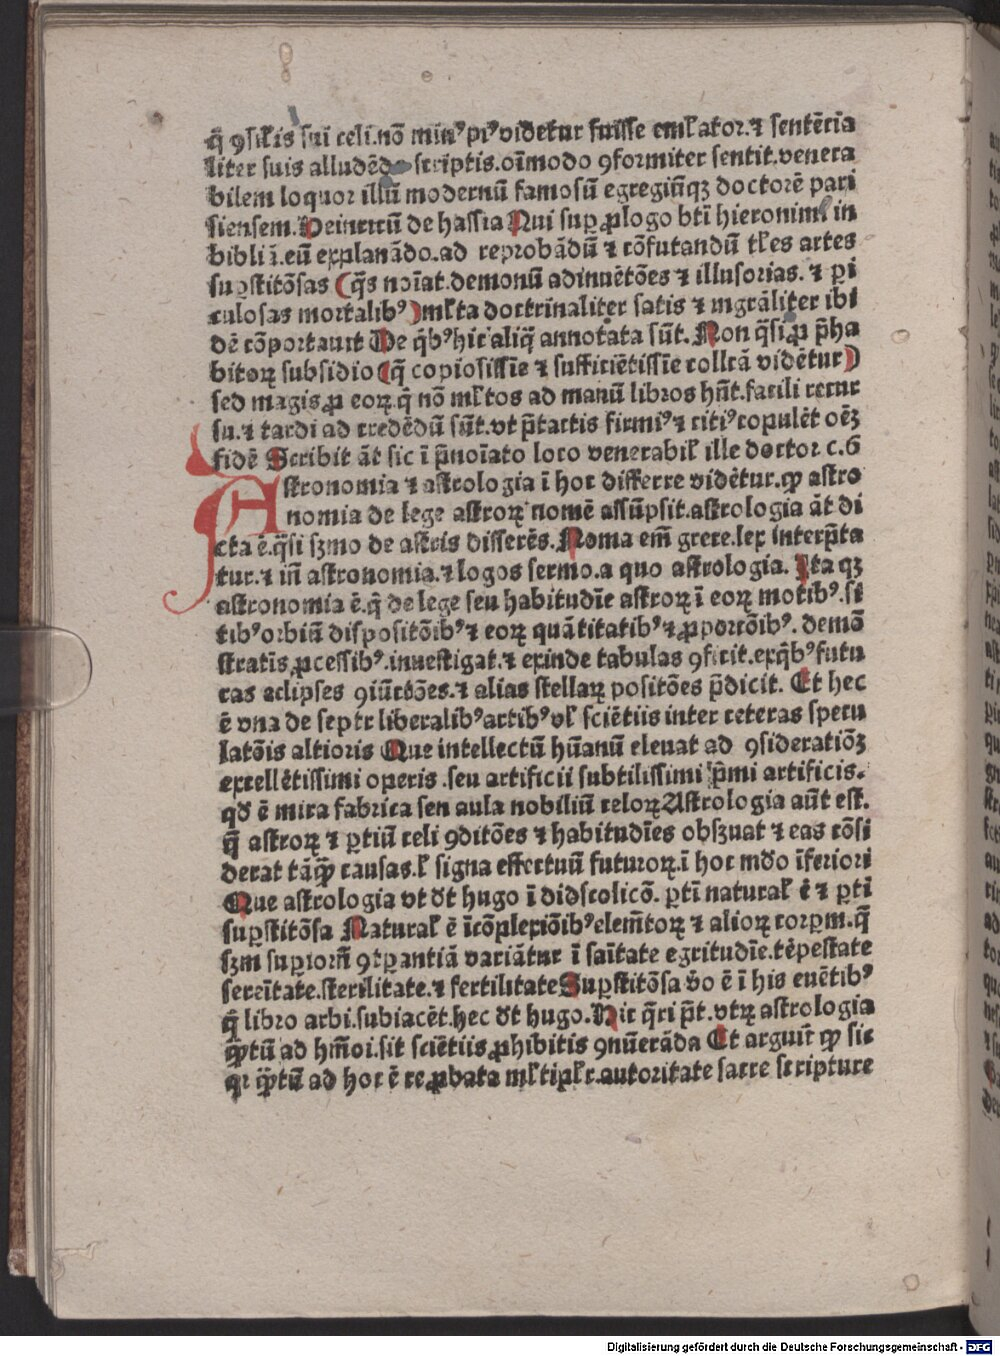 q̄ ꝯſil'is ſui celi.nō minꝰ piꝰ videtur fuiſſe eml'ator.⁊ ſentēcia
liter ſuis alludēdo ſcriptis.oīmodo ꝯformiter ſentit.venera
bilem loquor illū modernū famoſū egregiūqꝫ doctorē pari
ſienſem.Heinricū de haſſia Qui ſuꝑ ꝓlogo btī hieronimi in
bibli ī.eū explanādo.ad reprobādū ⁊ cōfutandū tl'es artes
ſuꝑſtitōſas (q̄s noīat.demonū adinuētōes ⁊ illuſorias.⁊ ꝑi
culoſas mortalibꝰ) ml'ta doctrinaliter ſatis ⁊ mgrāliter ibi
dē cōportauit De q̄bꝰ hic aliq̄ annotata ſūt. Non q̄ſi ꝓ p̄ha
bitoꝝ ſubſidio (q̄ copioſiſſīe ⁊ ſufficiētiſſīe collcā vidētur)
ſed magis ꝓ eoꝝ q̄ nō ml'tos ad manū libros hn̄t.facili recur
ſu.⁊ tardi ad credēdū ſūt.vt p̄tactis firmiꝰ ⁊ citiꝰ copulēt oēꝫ
fidē Scribit āt ſic ī p̄noīato loco venerabil' ille doctor c.6
Aſtronomia ⁊ aſtrologia ī hoc differre vidētur.ꝙ aſtro
nomia de lege aſtroꝝ nomē aſſūpſit.aſtrologia āt di
cta ē.q̄ſi ſꝫmo de aſtris diſſerēs. Noma em̄ grece.lex interp̄ta
tur.⁊ in̄ aſtronomia.⁊ logos ſermo.a quo aſtrologia. Ita qꝫ
aſtronomia ē.q̄ de lege ſeu habitudīe aſtroꝝ ī eoꝝ motibꝰ.ſi
tibꝰ orbiū diſpoſitōibꝰ ⁊ eoꝝ quātitatibꝰ ⁊ ꝓporcōibꝰ. demō
ſtratīs ꝓceſſibꝰ.inueſtigat.⁊ exinde tabulas ꝯficit.exq̄bꝰ futu
ras eclipſes ꝯiūctōes.⁊ alias ſtellaꝝ poſitōes p̄dicit. Et hec
ē vna de ſeptē liberalibꝰ artibꝰ vl' ſciētiis inter ceteras ſpecu
latōis altioris Que intellectū hūanū eleuat ad ꝯſideratiōꝫ
excellētiſſimi operis .ſeu artificii ſubtiliſſimi p̄mi artificis.
qd' ē mira fabrica ſeu aula nobiliū celoꝝ Aſtrologia aūt eſt.
q̄ aſtroꝝ ⁊ ꝑtiū celi ꝯditōes ⁊ habitudīes obſꝫuat ⁊ eas cōſi
derat tāq̄ꝫ cauſas.l' ſigna effectuū futuroꝝ.ī hoc mdo īferiori
Que aſtrologia vt dt hugo ī didſcolicō. ꝑtī natural' ē ⁊ ꝑtī
ſuꝑſtitōſa Natural' ē īcōplexiōibꝰ elem̄toꝝ ⁊ alioꝝ corꝑm.q̄
ſꝫm ſuꝑiorn̄ ꝯtꝑantiā variātur ī ſaītate egritudīe.tēpeſtate
ſereītate.ſterilitate.⁊ fertilitate Suꝑſtitōſa v̄o ē ī his euētibꝰ
q̄ libro arbi.ſubiacēt.hec dt hugo. Hic q̄ri p̄t.vtꝝ aſtrologia
q̄ꝫtū ad hm̄oi.ſit ſciētiis ꝓhibitis ꝯnūerāda Et arguit̄ ꝙ ſic
qꝛ q̄ꝫtū ad hoc ē reꝓbata ml'tipl'r.autoritate ſacre ſcripture
Digitalisierung gefördert durch die Deutsche Forschungsgemeinschaft - DFG